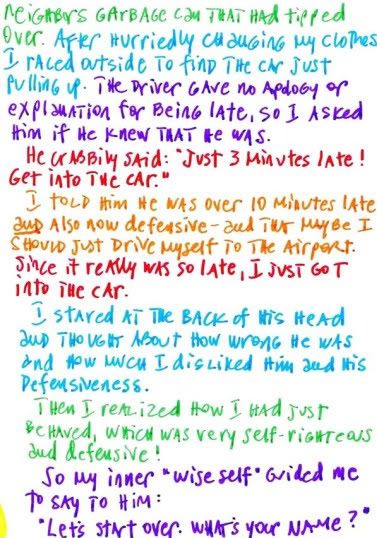 NeigHBors GARBAGE CAN THAT HAD tipped
over. After Hurriedly CHANGING My Clothes
I raced outside To find THE CAR Just
pulling up. THE Driver GAVE no Apology or
explanation for Being Late, so I Asked
Him if He Knew THAT He WAS.
He CrABBily SAID: "Just 3 Minutes late!
Get into THE CAR."
I TOLD Him He was over 10 Minutes late
and Also now defensive - and THAT MAyBe I
SHould Just Drive Myself To THE Airport.
Since it reAlly WAS so late, I JUST GOT
into THE CAR.
I STARED AT THE BACK of His HeAd
and THOUGHT ABout How wrong He WAS
and How MUCH I disliked Him and His
Defensiveness.
THEN I reAlized How I HAD JUST
BeHAVED, WHICH WAS very self-righteous
and defensive!
So My inner "wise self" Guided me
To SAy To Him:
"LeT's Start over. WHAT's your NAME?"